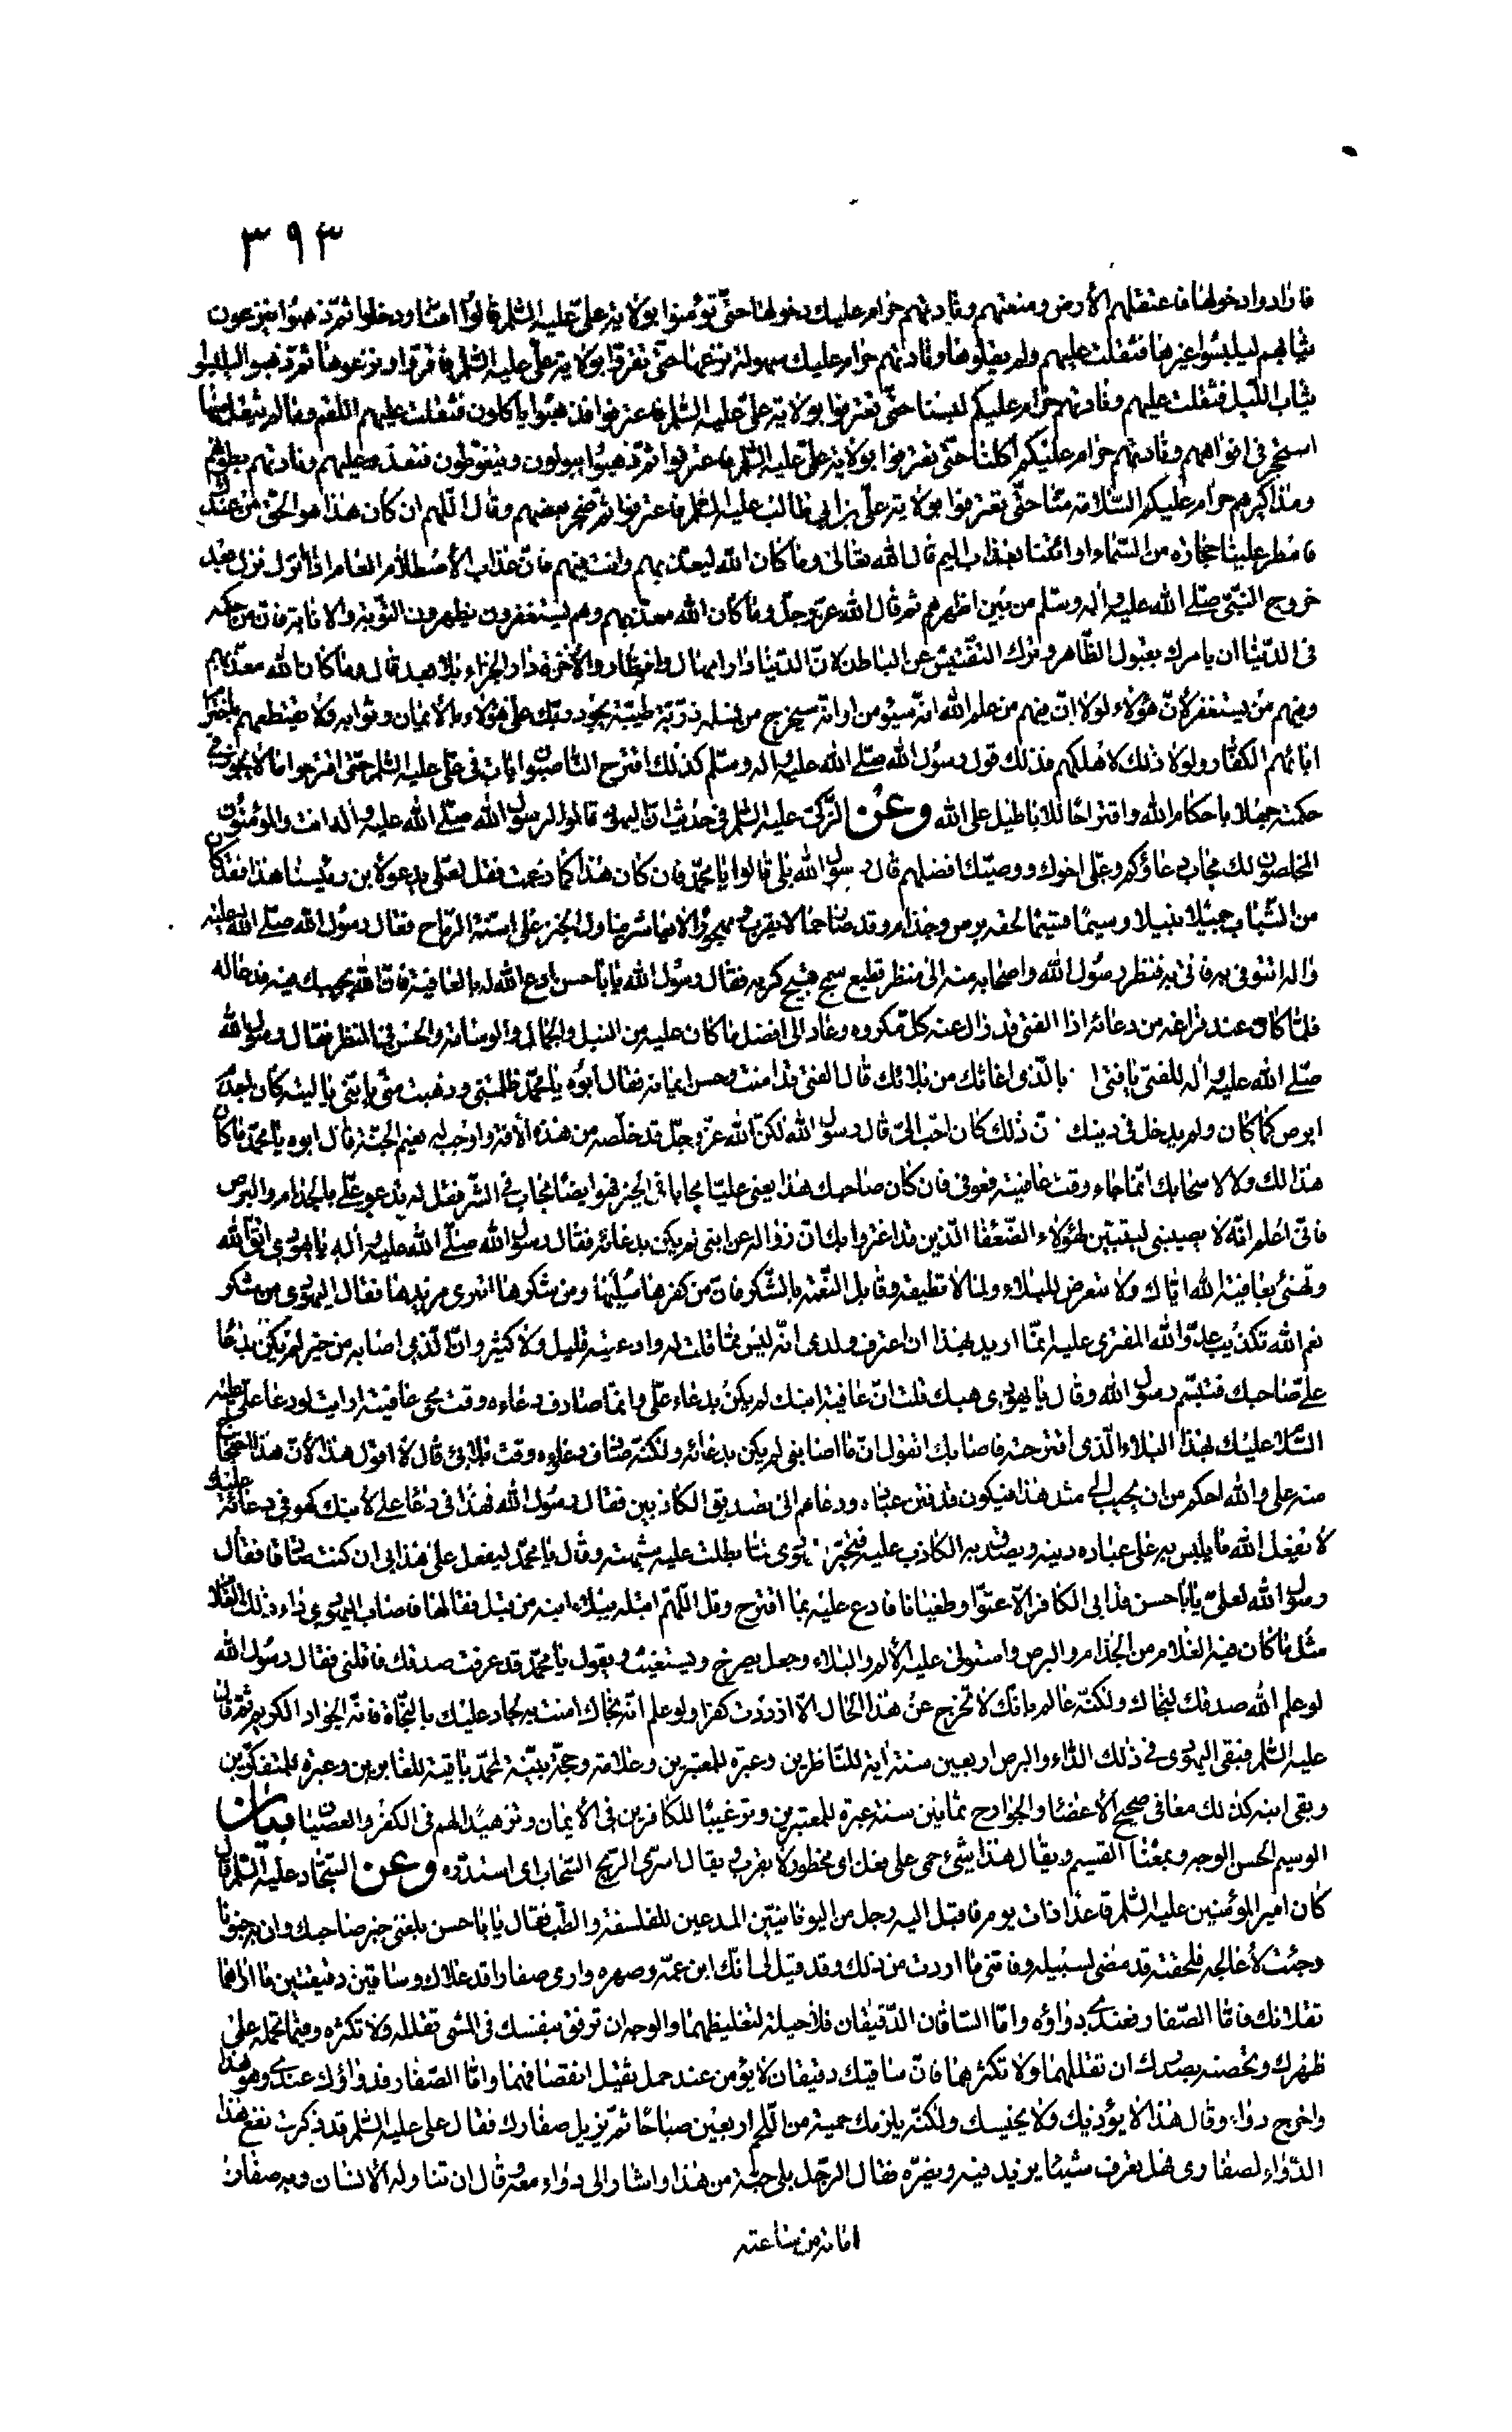 ٣٩٣
فارادوا دخولها فاعتقلتهم الأرض ومنعتهم ونادتهم حرام عليك دخولها حتى تؤمنوا بولاية علي عليه السلم قالوا امنا ودخلوا ثم ذهبوا ينزعون
ثيابهم ليلبسوا غيرها فثقلت عليهم ولم يقلوها ونادتهم حرام عليك سهولة نزعها حتى تقروا بولاية علي عليه السلم فاقروا ونزعوها ثم ذهبوا ليلبسوا
ثياب الليل فثقلت عليهم ونادتهم حرام عليكم لبسنا حتى تعترفوا بولاية علي عليه السلم فاعترفوا فذهبوا ياكلون فثقلت عليهم اللقم وما لم يثقل منها
استحجر في افواههم ونادتهم حرام عليكم اكلنا حتى تعترفوا بولاية علي عليه السلم فاعترفوا ثم ذهبوا يبولون ويتغوطون فتعذر عليهم ونادتهم بطونهم
ومذاكيرهم حرام عليكم السلامة منا حتى تعترفوا بولاية علي بن ابي طالب عليه السلم فاعترفوا ثم ضجر بعضهم وقال اللهم ان كان هذا هو الحق من عندك
فامطر علينا حجارة من السماء او ائتنا بعذاب اليم قال الله تعالى وما كان الله ليعذبهم وانت فيهم فان عذاب الأصطلام العام اذا نزل نزل بعد
خروج النبي صلى الله عليه واله وسلم من بين اظهرهم ثم قال الله عز وجل وما كان الله معذبهم وهم يستغفرون يظهرون التوبة والانابة فان من حكمه
في الدنيا ان يامرك بقبول الظاهر وترك التفتيش عن الباطن لان الدنيا دار امهال وانظار والأخرة دار الجزاء بلا بعد قال وما كان الله معذبهم
وفيهم من يستغفر لأن هؤلاء لولا ان فيهم من علم الله انه سيؤمن او انه سيخرج من نسله ذرية طيبة يجود ربك على هؤلاء بالأيمان وثوابه ولا يقتطعهم باخترام
ابائهم الكفار ولولا ذلك لاهلكهم فذلك قول رسول الله صلى الله عليه واله وسلم كذلك اقترح الناصبون ايات في علي عليه السلم حتى اقترحوا ما لا يجوز في
حكمته جهلا باحكام الله واقتراحا للاباطيل على الله وعن الزكي عليه السلم في حديث ان اليهود قالوا لرسول الله صلى الله عليه واله انت والمؤمنون
المخلصون لك مجاب دعاؤكم وعلي اخوك ووصيك افضلهم قال رسول الله بلى قالوا يا محمد فان كان هذا كما زعمت فقل لعلي يدعو لابن رئيسنا هذا فقد كان
من الشباب جميلا نبيلا وسيما قسيما لحقه برص وجذام وقد صار حما لا يقرب ومهجورا لا يعاشر يناول الخبز على اسنة الرماح فقال رسول الله صلى الله عليه
واله ائتوني به فاتي به فنظر رسول الله واصحابه منه الى منظر فظيع سمج قبيح كريه فقال رسول الله يا ابا حسن ادع الله له بالعافية فان الله يجيبك فيه فدعا له
فلما كان عند فراغه من دعائه اذا الفتى قد زال عنه كل مكروه وعاد الى افضل ما كان عليه من النبل والجمال والوسامة والحسن في المنظر فقال رسول الله
صلى الله عليه واله للفتى يا فتى بالذي اغاثك من بلائك قال الفتى قد امنت وحسن ايمانه فقال ابوه يا محمد ظلمتني وذهبت مني بابني يا ليته كان اجذم
ابرص كما كان ولم يدخل في دينك ن ذلك كان احب الي قال رسول الله لكن الله عز وجل قد خلصه من هذه الأفة واوجب له نعيم الجنة قال ابوه يا محمد ما كان
هذا لك ولا لاصحابك انما جاء وقت عافيته فعوفي فان كان صاحبك هذا يعني عليا مجابا في الخير فهو ايضا مجاب في الشر فقل له يدعو علي بالجذام والبرص
فاني اعلم انه لا يصيبني ليتبين لهؤلاء الضعفا الذين قد اغتروا بك ان زواله عن ابني لم يكن بدعائه فقال رسول الله صلى الله عليه واله يا يهودي اتق الله
وتهنئ بعافية الله اياك ولا تتعرض للبلاء ولما لا تطيقه وقابل النعمة بالشكر فان من كفرها سلبها ومن شكرها امترى مزيدها فقال اليهودي من شكر
نعم الله تكذيب عدو الله المفتري عليه انما اريد بهذا ان اعرف ولدي انه ليس مما قلت له وادعيته قليل ولا كثير وان الذي اصابه من خير لم يكن بدعا
علي صاحبك فتبسم رسول الله وقال يا يهودي هبك قلت ان عافية ابنك لم يكن بدعاء علي وانما صادف دعاءه وقت مجي عافيته ارايت لو دعا علي عليه
السلم عليك بهذا البلاء الذي اقترحته فاصابك اتقول ان ما اصابني لم يكن بدعائه ولكنه صادف دعاءه وقت بلائي قال لا اقول هذا لأن هذا احتجاج
منه علي والله احكم من ان يجيب الى مثل هذا فيكون قد فتن عباده ودعاهم الى تصديق الكاذبين فقال رسول الله فهذا في دعا علي لأبنك كهو في دعائه عليك
لا يفعل الله ما يلبس به على عباده دينه ويصدق به الكاذب عليه فتحير يهودي لما بطلت عليه شبهته وقال يا محمد ليفعل علي هذا بي ان كنت صادقا فقال
رسول الله لعلي يا ابا حسن قد ابى الكافر الا عتوا وطغيانا فادع عليه بما اقترح وقل اللهم ابتله ببلاء ابنه من قبل فقالها فاصاب اليهودي داء ذلك الغلام
مثل ما كان فيه الغلام من الجذام والبرص واستولى عليه الألم والبلاء وجعل يصرخ ويستغيث ويقول يا محمد قد عرفت صدقك فاقلني فقال رسول الله
لو علم الله صدقك لنجاك ولكنه عالم بانك لا تخرج عن هذا الحال الا ازددت كفرا ولو علم انه نجاك امنت به لجاد عليك بالنجاة فانه الجواد الكريم ثم قال
عليه السلم فبقي اليهودي في ذلك الداء والبرص اربعين سنة اية للناظرين وعبرة للمعتبرين وعلامة وحجة بينة لمحمد باقية للغابرين وعبرة للمتفكرين
وبقي ابنه كذلك معافى صحيح الأعضاء والجوارح ثمانين سنة عبرة للمعتبرين وترغيبا للكافرين في الأيمان وتزهيدا لهم في الكفر والعصيان بيان
الوسيم الحسن الوجه وبمعناه القسيم ويقال هذا شئ حمى على فعل اي محظور لا يقرب ويقال امترى الريح السحاب اي استدره وعن السجاد عليه السلم قال
كان امير المؤمنين عليه السلم قاعدا ذات يوم فاقبل اليه رجل من اليونانيين المدعين للفلسفة والطب فقال يا ابا حسن بلغني خبر صاحبك وان به جنونا
وجئت لأعالجه فلحقته قد مضى لسبيله وفاتني ما اردت من ذلك وقد قيل لي انك ابن عمه وصهره وارى صفارا قد علاك وساقين دقيقتين ما اراهما
تقلانك فاما الصفار فعندي دواؤه واما الساقان الدقيقان فلا حيلة لتغليظهما والوجه ان ترفق بنفسك في المشي تقلله ولا تكثره وفيما تحمله على
ظهرك وتحضنه بصدرك ان تقللهما ولا تكثرهما فان ساقيك دقيقان لا يؤمن عند حمل ثقيل انقصافهما واما الصفار فدواؤك عندي وهو هذا
واخرج دواء وقال هذا لا يؤذيك ولا يخيسك ولكنه يلزمك حمية من اللحم اربعين صباحا ثم يزيل صفارك فقال علي عليه السلم قد ذكرت نفع هذا
الدواء لصفاري فهل تعرف شيئا يزيد فيه ويضره فقال الرجل بلى حبة من هذا واشار الى دواء معه وقال ان تناوله الأنسان وبه صفار
اماته من ساعته